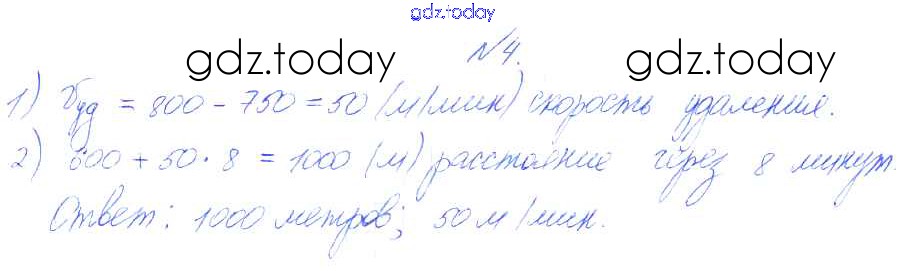 gdz.today
№4.
gdz.today gdz.today
1) Vуд = 800 - 750 = 50 (м/мин) скорость удаления.
2) 600 + 50 · 8 = 1000 (м) расстояние через 8 минут.
Ответ: 1000 метров; 50 м/мин.